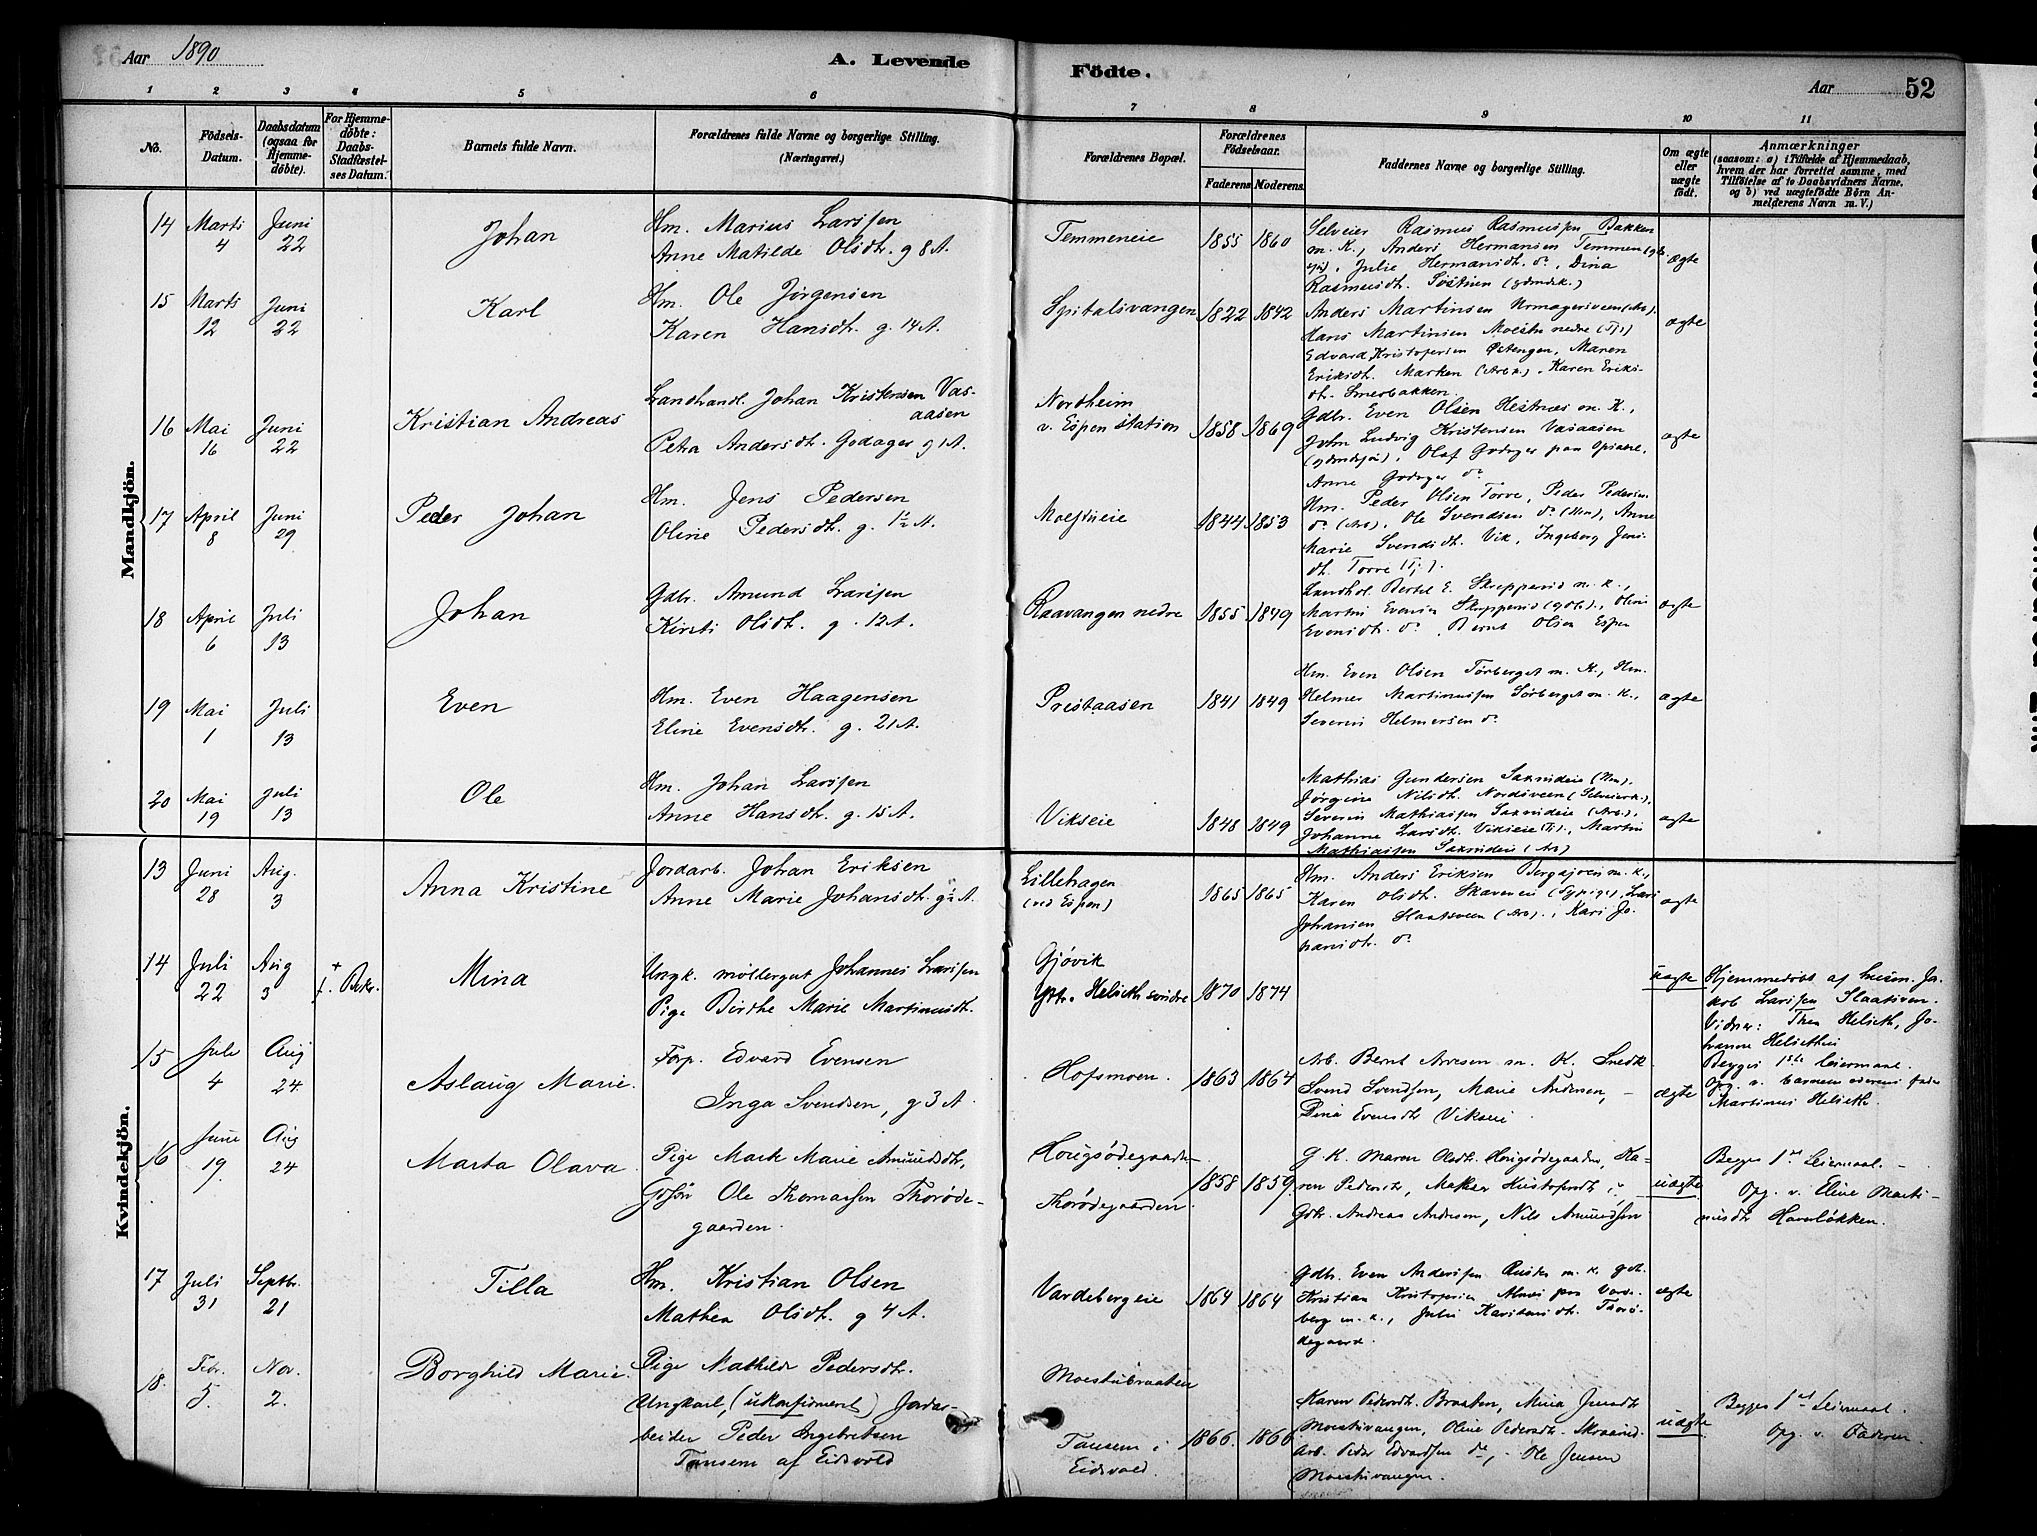 Aar 1890
A. Levende
Födte.
Aar
52
1 2 3 4 5 6 7 8 9 10 11
No.
Födsels-
Datum.
Daabsdatum
(ogsaa for
Hjemme-
døbte).
For Hjemme-
døbte:
Daabs-
Stadfæstel-
ses Datum.
Barnets fulde Navn.
Forældrenes fulde Navne og borgerlige Stilling.
(Næringsvei.)
Forældrenes Bopæl.
Forældrenes
Födselsaar.
Faderens. Moderens.
Faddernes Navne og borgerlige Stilling.
Om ægte
eller
uægte
født.
Anmærkninger
(saasom: a) i Tilfælde af Hjemmedaab,
hvem der har forrettet samme, med
Tilföielse af to Daabsvidners Navne,
og b) ved uægtefödte Börn An-
melderens Navn m. V.)
Mandkjön.
14 Marts 4 Juni 22
Johan
Hm. Marius Larssen
Anne Matilde Olsdt. g 8 A.
Temmeneie 1855 1860
Selveier Rasmus Rasmussen Bakken
m. K., Anders Hermansen Temmen
Julie Hermansdt. do, Dina
Rasmusdt.
ægte
15 Marts 12 Juni 22
Karl
Hm. Ole Jørgensen
Karen Hansdt. g. 14 A.
Spitalsvangen 1822 1842
Anders Martinsen
Hans Martinsen Moestu nedre
Edvard Kristofersen Østengen, Maren
Eriksdt. Marken (Arb.k.). Karen Eriks-
dt. Smerbakken.
ægte
16 Mai 16 Juni 22
Kristian Andreas
Landhandl. Johan Kristensen Vas-
aasen
Petra Andersdt. Godager g 1 A.
Nordheim
v. Espen station 1858 1869
Gdbr. Even Olsen Hestnæs m. K.,
John Ludvig Kristensen Vasaasen
Olaf Godager paa
Anne Godager do
ægte
17 April 8 Juni 29
Peder Johan
Hm. Jens Pedersen
Oline Pedersdt. g. 12 A.
Moestueie 1844 1853
Hm. Peder Olsen Torve, Peder Pedersen
do (Arb), Ole Svendsen do (Hm), Anne
Marie Svendsdt. Vik, Ingeborg Jens-
dt. Torve (Tj.).
18 April 6 Juli 13
Johan
Gdbr. Amund Larssen
Kirsti Olsdt. g. 12 A.
Raavangen nedre 1855 1849
Landhdl. Bertel E. Skrepperud m. k.,
Martin Evensen Skrepperud
Evensdt. do, Bernt Olsen Espen
ægte
19 Mai 1 Juli 13
Even
Hm. Even Haagensen
Eline Evensdt. g. 21 A.
Prestaasen 1841 1849
Hm. Even Olsen Torberget m. K., Hm.
Helmer Martinussen Sørberget m. k.,
Severin Helmersen do
ægte
20 Mai 19 Juli 13
Ole
Hm. Johan Larssen
Anne Hansdt. g. 15 A.
Vikseie 1848 1849
Mathias Gundersen Saxrudeie (Hm),
Jørgine Nilsdt. Nordsveen
Severin Mathiassen Saxrudeie (Arb.),
Johanne Larsdt. Vikseie (Tj.), Martin
Mathiassen Saxrudeie (Arb)
ægte
Kvindekjön.
13 Juni 28 Aug. 3
Anna Kristine
Jordarb. Johan Eriksen
Anne Marie Johansdt.
Lillehagen
(ved Espen) 1865 1865
Hm. Anders Eriksen m. k.,
Karen Olsdt. Lars
Johansen Slaatsveen (Arb)., Kari Jo-
hansdt. do
ægte
14 Juli 22 Aug 3
Mina
Ungk. møllergut Johannes Larssen
Pige Birthe Marie Martinusdt.
Gjøvik
Helseth søndre 1870 1874
uægte
Hjemmedøbt af Ja-
kob Larssen Slaatsveen.
Vidner: Thea Helseth, Jo-
hanne Helseth
Begges 1ste Leiermaal.
Opg. v. barnemoderens fader
Martinus Helseth.
15 Juli 4 Aug 24
Aslaug Marie.
Forp. Edvard Evensen
Inga Svendsen, g 3 A.
Hofsmoen. 1863 1864
Arb. Bernt Arnesen m. K. Snedk.
Svend Svendsen, Marie Andersen,
Dina Evensdtr Vikseie
ægte
16 Juni 19. Aug 24
Marta Olava
Pige Marte Marie Amundsdtr,
Gdsøn Ole Thomassen Thorøde-
gaarden.
Hougsødegaarden
Thorødegaarden. 1858 1859
G. K. Maren Olsdtr. Hougsødegaarden, Ka-
ren Pedersdtr,
Gdbr. Andreas Andresen, Nils Amundsen
uægte
Begges 1ste Leiermaal.
Opg. v. Eline Marti-
nusdtr Haveløkken.
17 Juli 31 Septbr. 21
Tilla
Hm. Kristian Olsen
Mathea Olsdt. g 4 A.
Vardebergeie 1864 1864
Gdbr. Even Anderssen m. k. gdt.
Kristian Kristofersen paa Varde-
berg m. k., Julie Karstensdt. Thorø-
degaard.
ægte
18. Febr. 5. Nov. 2.
Borghild Marie.
Pige Mathilde Pedersdtr.
Ungkarl, (ukonfirmert) Jordar-
beider Peder Ingebretsen
Tansem af Eidsvold
Moestubraaten
Tansem i
Eidsvold. 1866. 1866
Karen Pedersdt. Braaten, Mina Jensdt
Moestuvangen, Oline Pedersdt.
Arb. Peder Edvardsen do, Ole Jensen
Moestuvangen.
uægte
Begges 1ste Leiermaal.
Opg. v. Faderen.